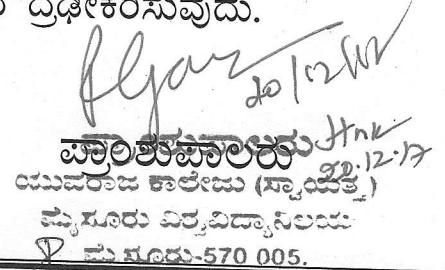 ದ್ರಢೀಕರಿಸುವುದು.
20/12/
ಪ್ರಾಂಶುಪಾಲರು
22.12.17
ಯುವರಾಜ ಕಾಲೇಜು (ಸ್ವಾಯತ್ತ)
ಮೈಸೂರು ವಿಶ್ವವಿದ್ಯಾನಿಲಯ
ಮೈಸೂರು-570 005.